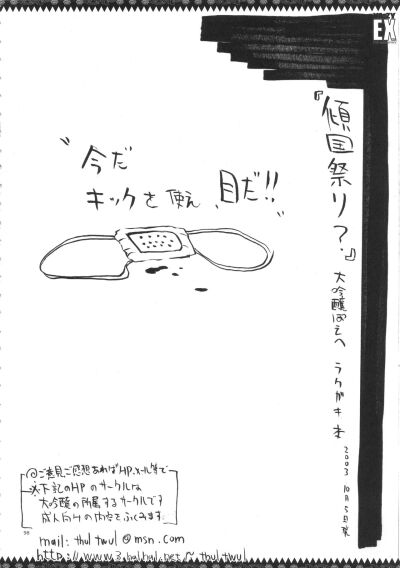 EX
『傾国祭り?』
大吟醸ぽえへ ラクガキ本
2003 10月5日発
"今だ
キックを使え、目だ!!"
◎ご意見ご感想あればHP、メール等で
※下記のHPのサークルは
大吟醸の所属するサークルです
成人向けの内容をふくみます。
mail: thultwul@msn.com